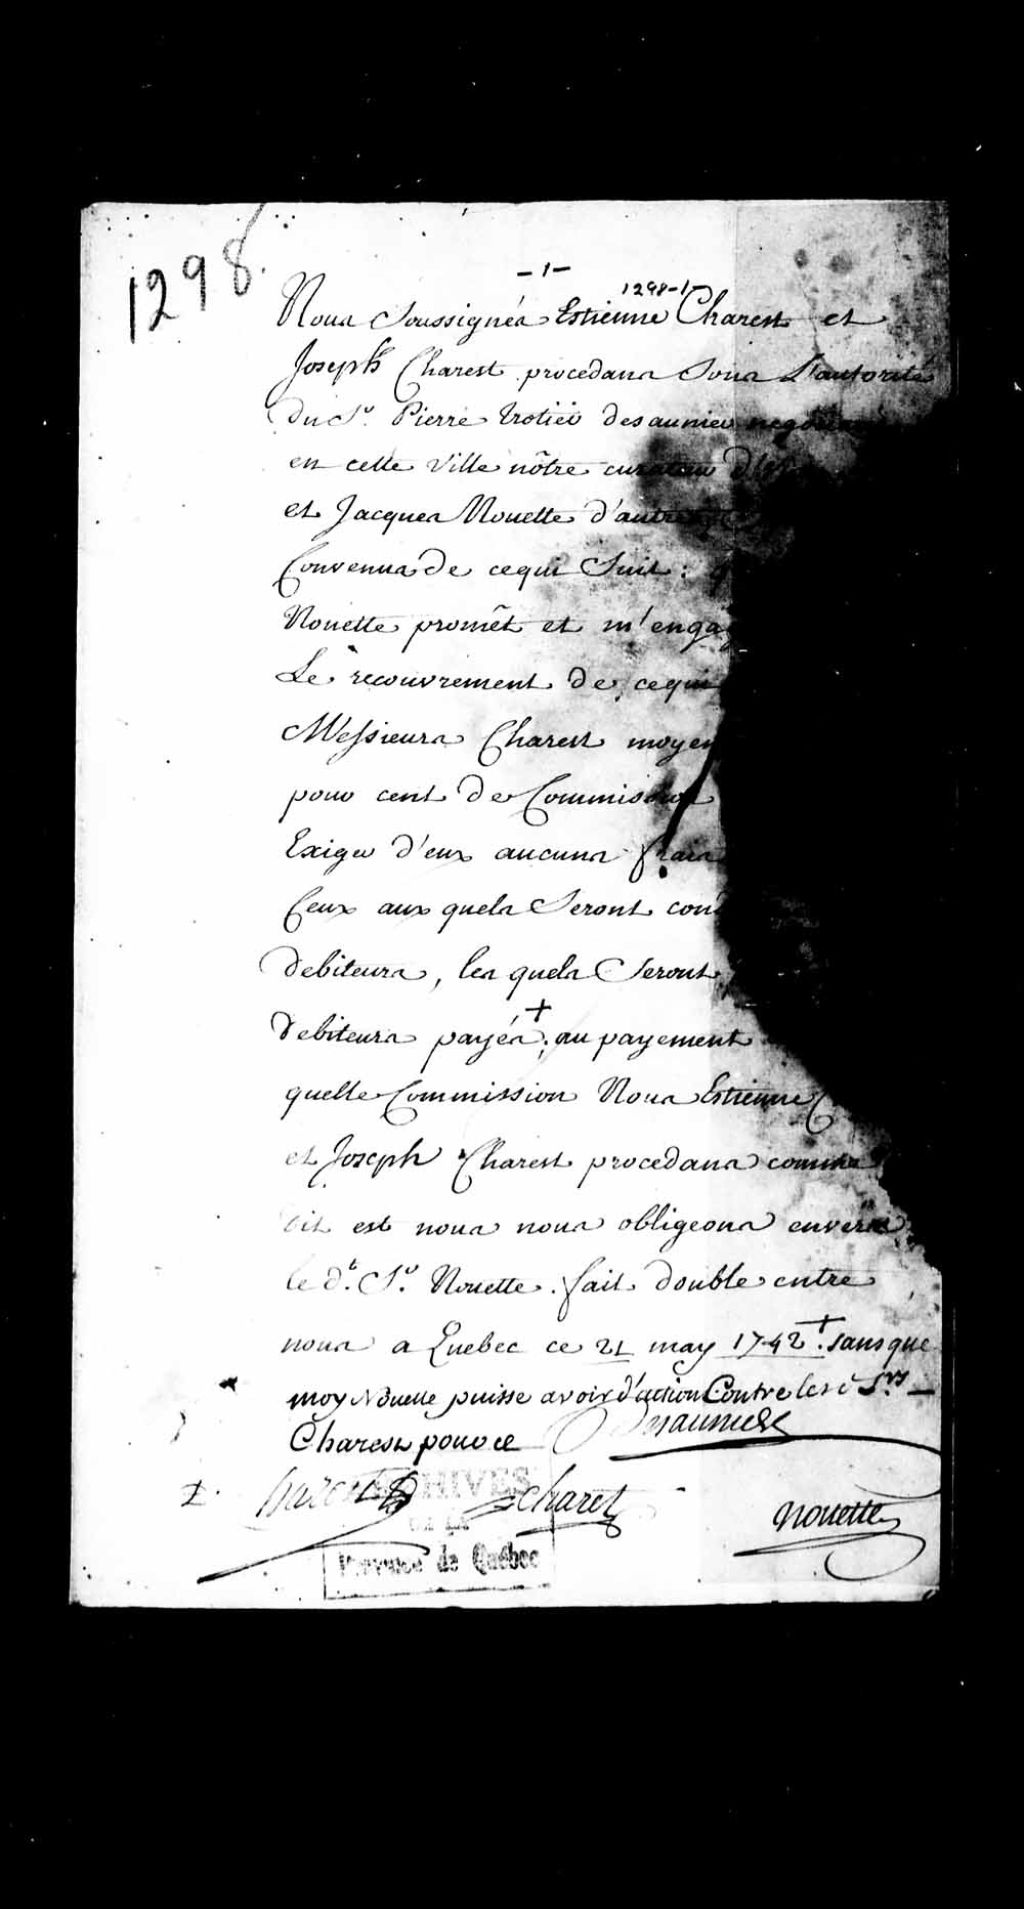 1298.
- 1 -
1298-1
Nous Soussignés Estienne Charest et
Joseph Charest procedans Sous L'autorité
du Sr. Pierre trotier desauniers
en cette Ville nôtre curateur
et Jacques Nouette d'autre
Convenus de cequi Suit :
Nouette promêt et m'engage
Le recouvrement de cequi
Messieurs Charest
pour cent de Commission
Exiger d'eux aucuns frais
Ceux aux quels Seront
debiteurs, les quels Seront
debiteurs payés + ; au payement
quelle Commission Nous Estienne
et Joseph Charest procedans comme
dit est nous nous obligeons envers
le dt. Sr. Nouette . fait double entre
nous a Quebec ce 21 may 1742 + . sans que
moy Nouette puisse avoir d'action Contre les Srs
Charest pour ce Desauniers
Charest Charest Nouette
ARCHIVES
DE LA
Province de Québec